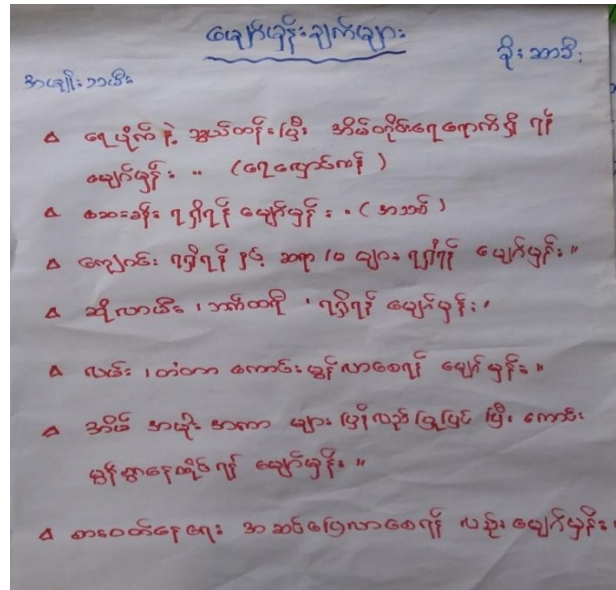 မျှော်မှန်းချက်များ
မိုးသာဒီ.
အမျိုးသမီး
ရေပိုက်နဲ့ သွယ်တန်းပြီး အိမ်တိုင်ရေရောက်ရှိ ရန်
မျှော်မှန်း ။ (ရေလှောင်ကန်)
ဆေးခန်း ရရှိရန် မျှော်မှန်း ။ (အသစ်)
ကျောင်း ရရှိရန် နှင့် ဆရာ/မ များ ရရှိရန် မျှော်မှန်း။
ဆိုလာမီး ၊ ဘက်ထရီ ၊ ရရှိရန် မျှော်မှန်း၊
လမ်း ၊ တံတာ ကောင်းမွန်လာစေရန် မျှော်မှန်း ။
အိမ် အမိုး အကာ များ ပြန်လည်ပြုပြင် ပြီး ကောင်း
မွန်စွာနေထိုင်ရန် မျှော်မှန်း ။
စားဝတ်နေရေး အဆင်ပြေလာစေရန် လည်း မျှော်မှန်း။